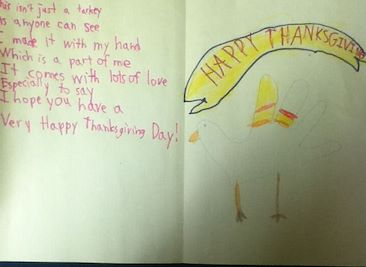 his isn't just a turkey
As anyone can see
I made it with my hand
Which is a part of me
It comes with lots of love
Especially to say
I hope you have a
Very Happy Thanksgiving Day!
HAPPY THANKSGIVING